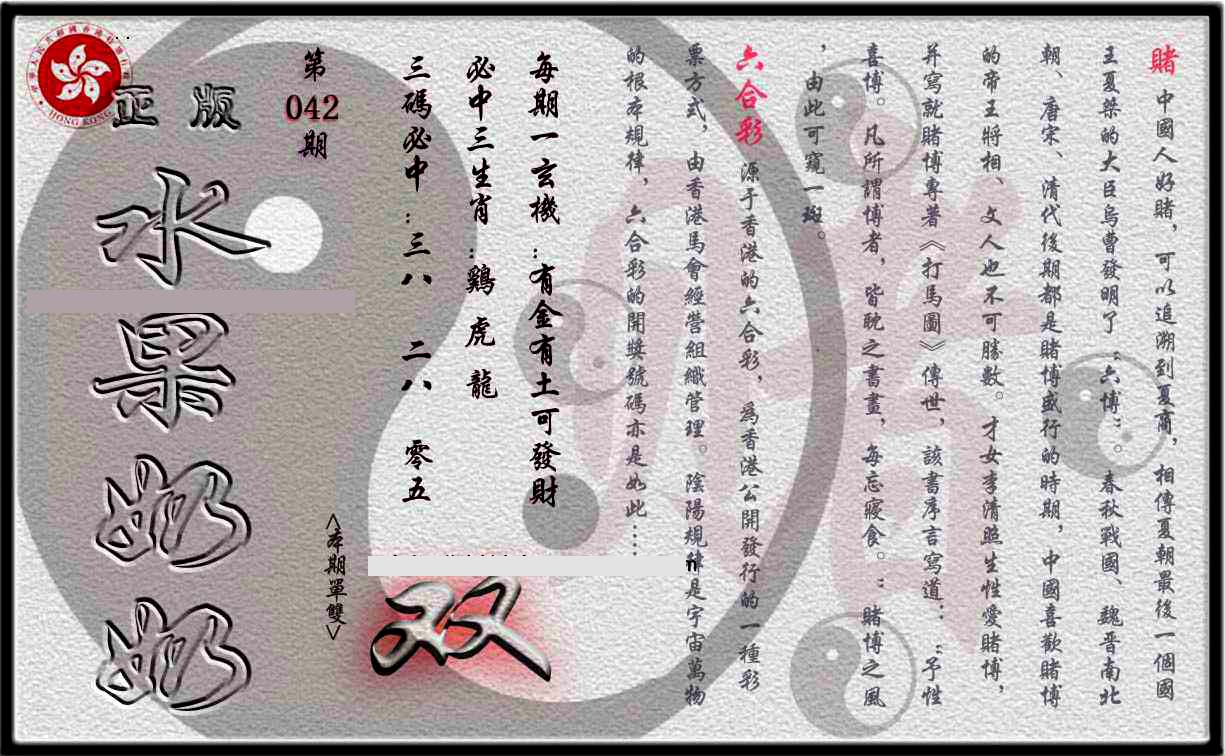 賭 中國人好賭，可以追溯到夏商，相傳夏朝最後一個國
王夏桀的大臣烏曹發明了“六博”。春秋戰國、魏晋南北
朝、唐宋、清代後期都是賭博盛行的時期，中國喜歡賭博
的帝王將相、文人也不可勝數。才女李清照生性愛賭博，
并寫就賭博專著《打馬圖》傳世，該書序言寫道：“予性
喜博。凡所謂博者，皆耽之晝夜，每忘寢食。”賭博之風
，由此可窺一斑。
六合彩 源于香港的六合彩，爲香港公開發行的一種彩
票方式，由香港馬會經營組織管理。陰陽規律是宇宙萬物
的根本規律，六合彩的開獎號碼亦是如此…
每期一玄機：有金有土可發財
必中三生肖：鷄 虎 龍
三碼必中：三八 二八 零五
第
042
期
<本期單雙>
双
正版
水果奶奶
HONG KONG